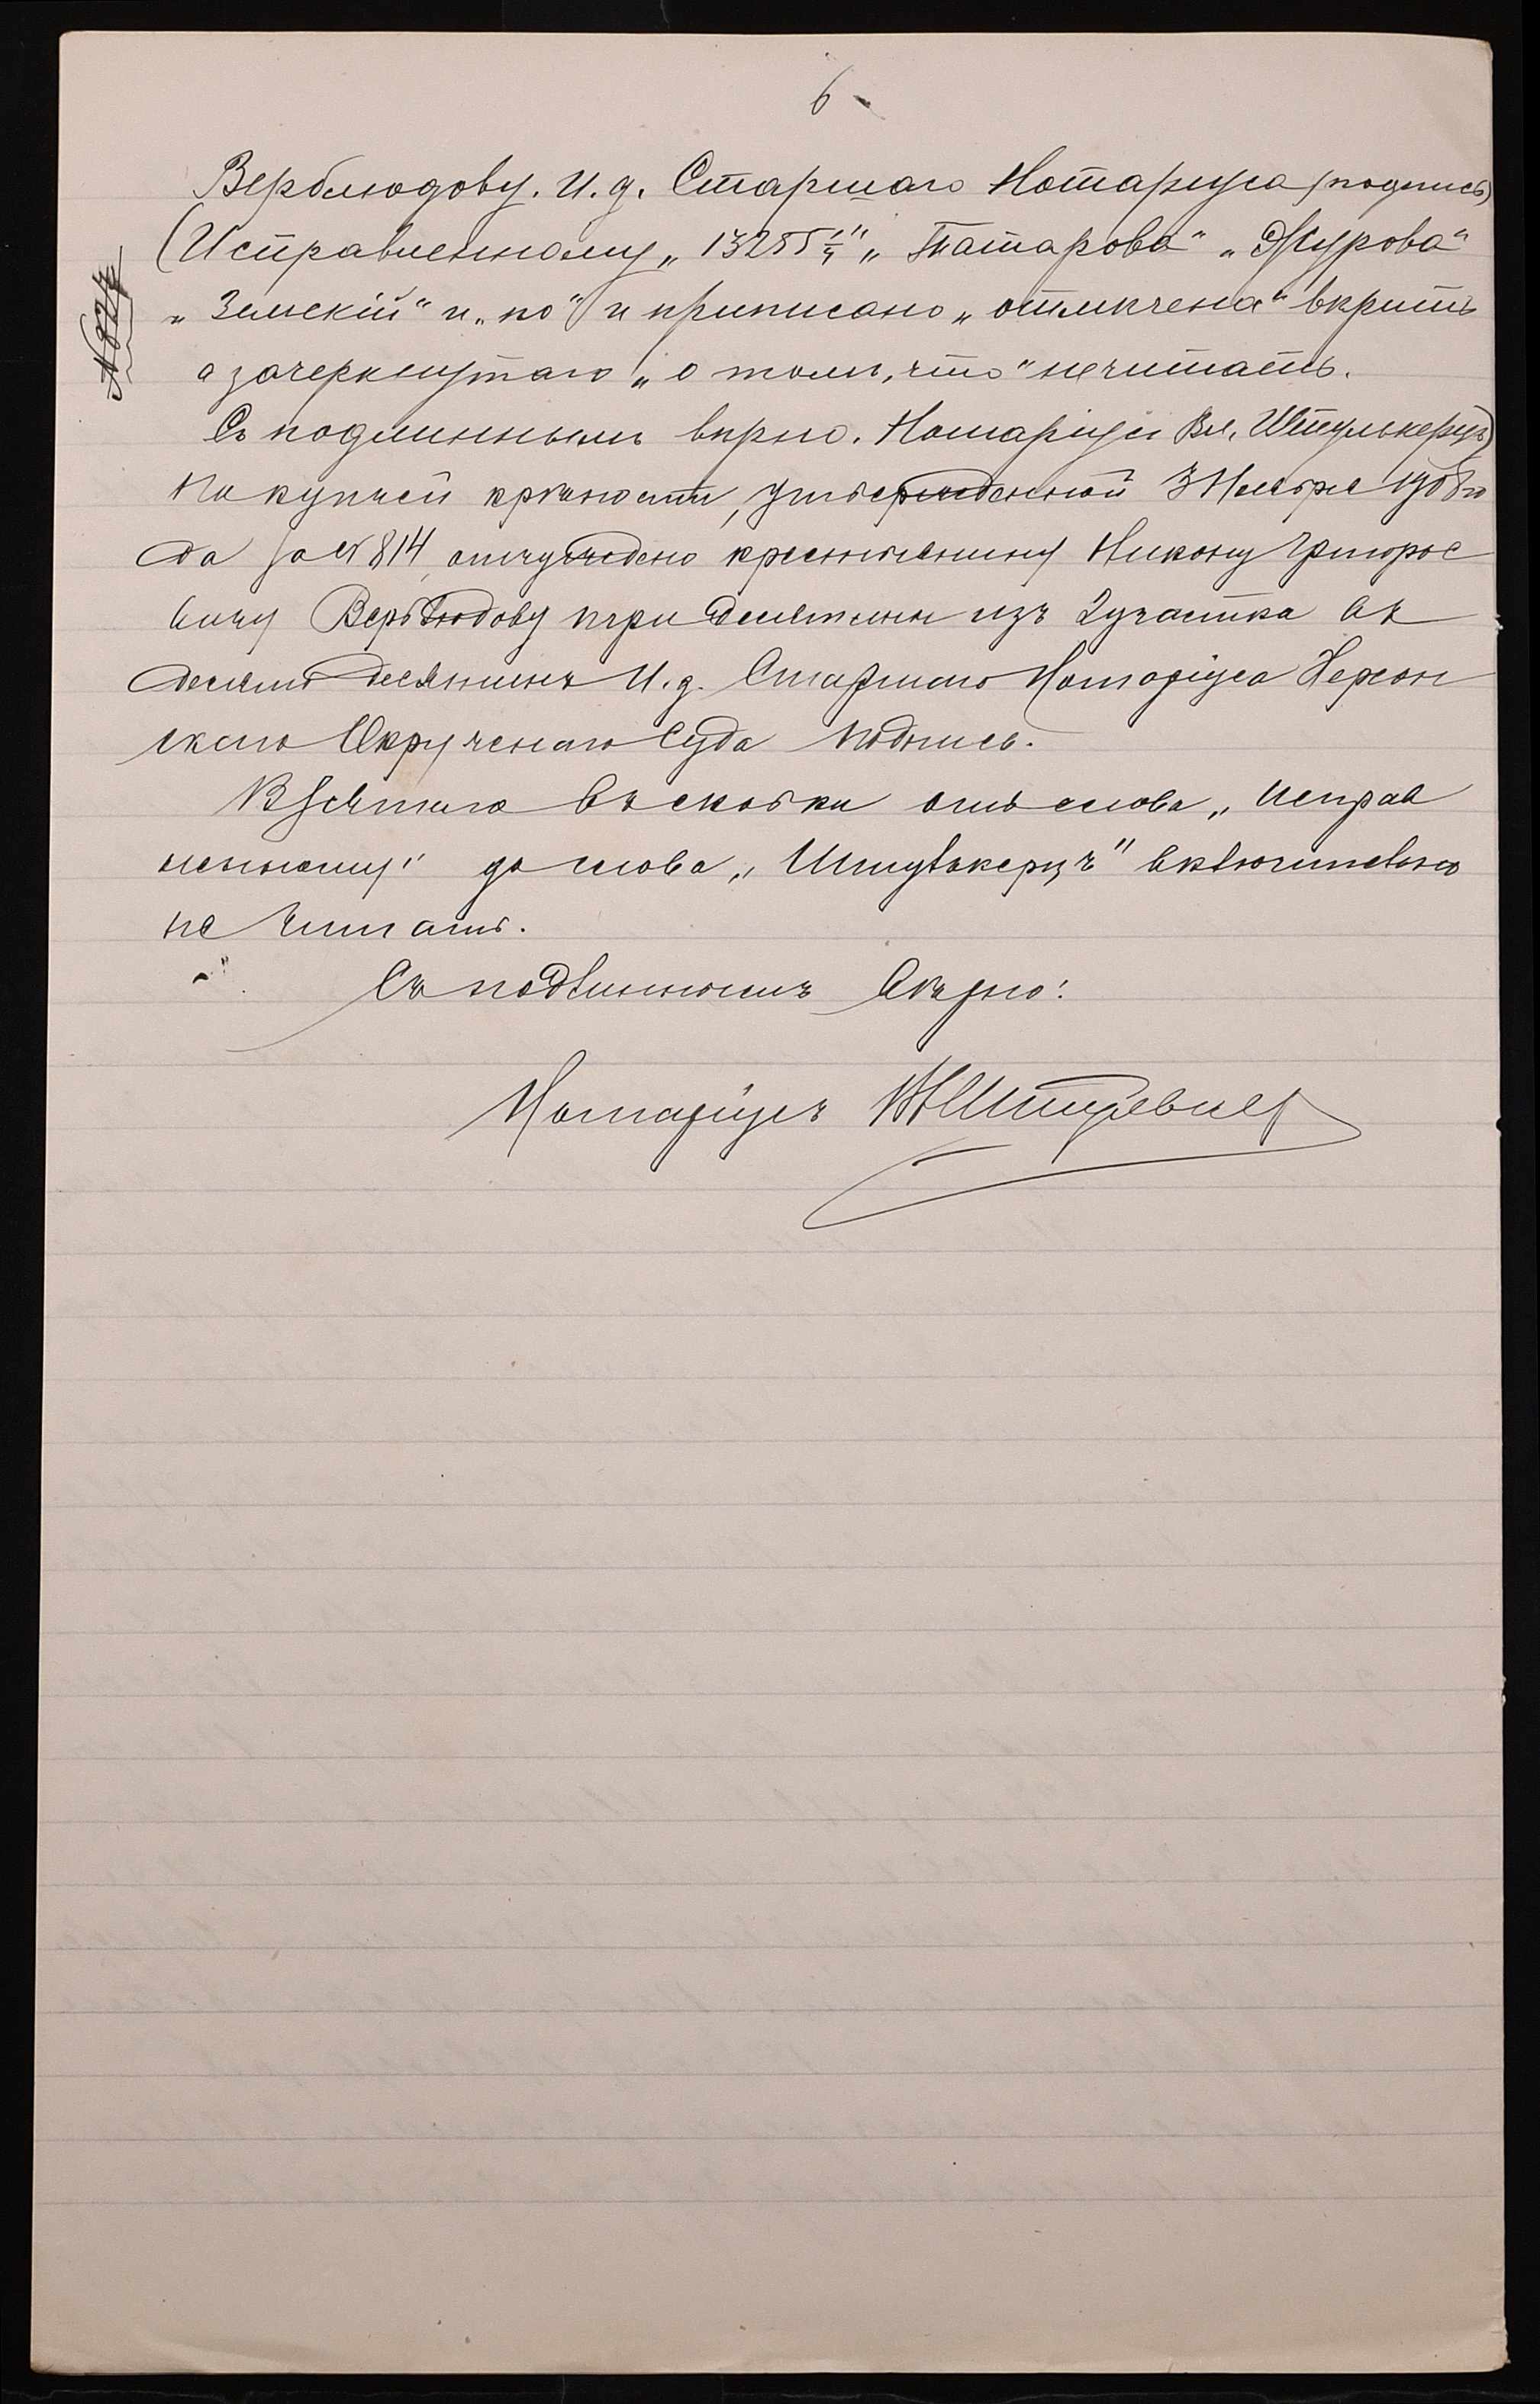 6
Верблюдову. И. д. Старшаго Нотаріуса (подпись)
(Исправленному „13255 1/4" „Татарова" „Журова"
„Земскій" и „по" и приписано „отмѣчена" вѣрить
а зачеркнутаго „о томъ, что" не читать.
Съ подлиннымъ вѣрно. Нотаріусъ Вл. Штулькерцъ)
По купчей крѣпости, утвержденной 3 Ноября 1908 го
да за № 814, отчуждено крестьянину Никону Григорье
вичу Верблюдову три десятины изъ участка въ
десять десятинъ И. д. Старшаго Нотаріуса Херсон
скаго Окружнаго Суда подпись.
Взятаго въ скобки отъ слова „Исправ
ленному" до слова „Штулькерцъ" включительно
не читать.
Съ подлиннымъ вѣрно:
Нотаріусъ